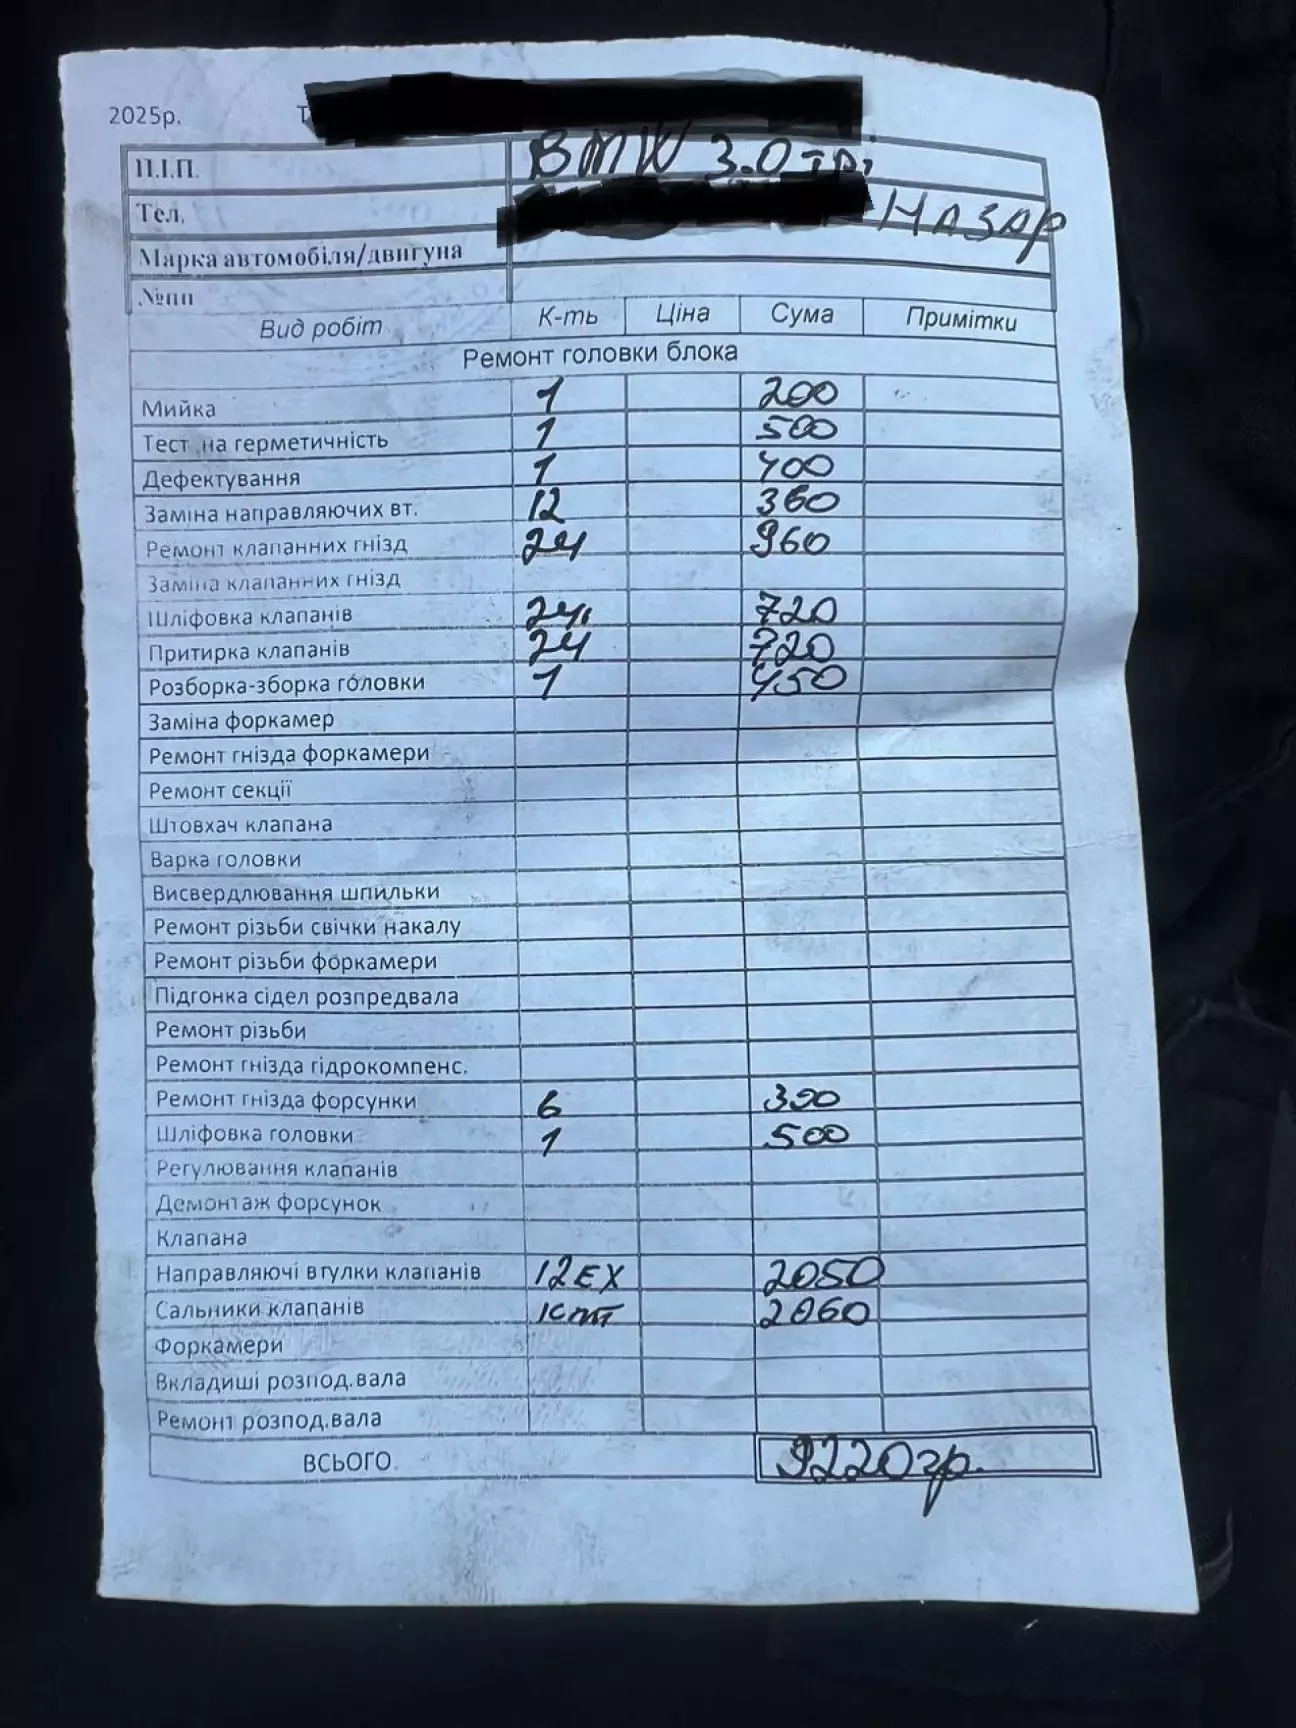 2025р.
П.І.П. ВМW 3.0 трі
Тел. НАЗАР
Марка автомобіля/двигуна
№пп
Вид робіт К-ть Ціна Сума Примітки
Ремонт головки блока
Мийка 1 200
Тест на герметичність 1 500
Дефектування 1 400
Заміна направляючих вт. 12 360
Ремонт клапанних гнізд 24 960
Заміна клапанних гнізд
Шліфовка клапанів 24 720
Притирка клапанів 24 720
Розборка-зборка головки 1 450
Заміна форкамер
Ремонт гнізда форкамери
Ремонт секції
Штовхач клапана
Варка головки
Висвердлювання шпильки
Ремонт різьби свічки накалу
Ремонт різьби форкамери
Підгонка сідел розпредвала
Ремонт різьби
Ремонт гнізда гідрокомпенс.
Ремонт гнізда форсунки 6 300
Шліфовка головки 1 500
Регулювання клапанів
Демонтаж форсунок
Клапана
Направляючі втулки клапанів 12 EX 2050
Сальники клапанів кпт 2060
Форкамери
Вкладиші розпод.вала
Ремонт розпод.вала
ВСЬОГО. 9220гр.